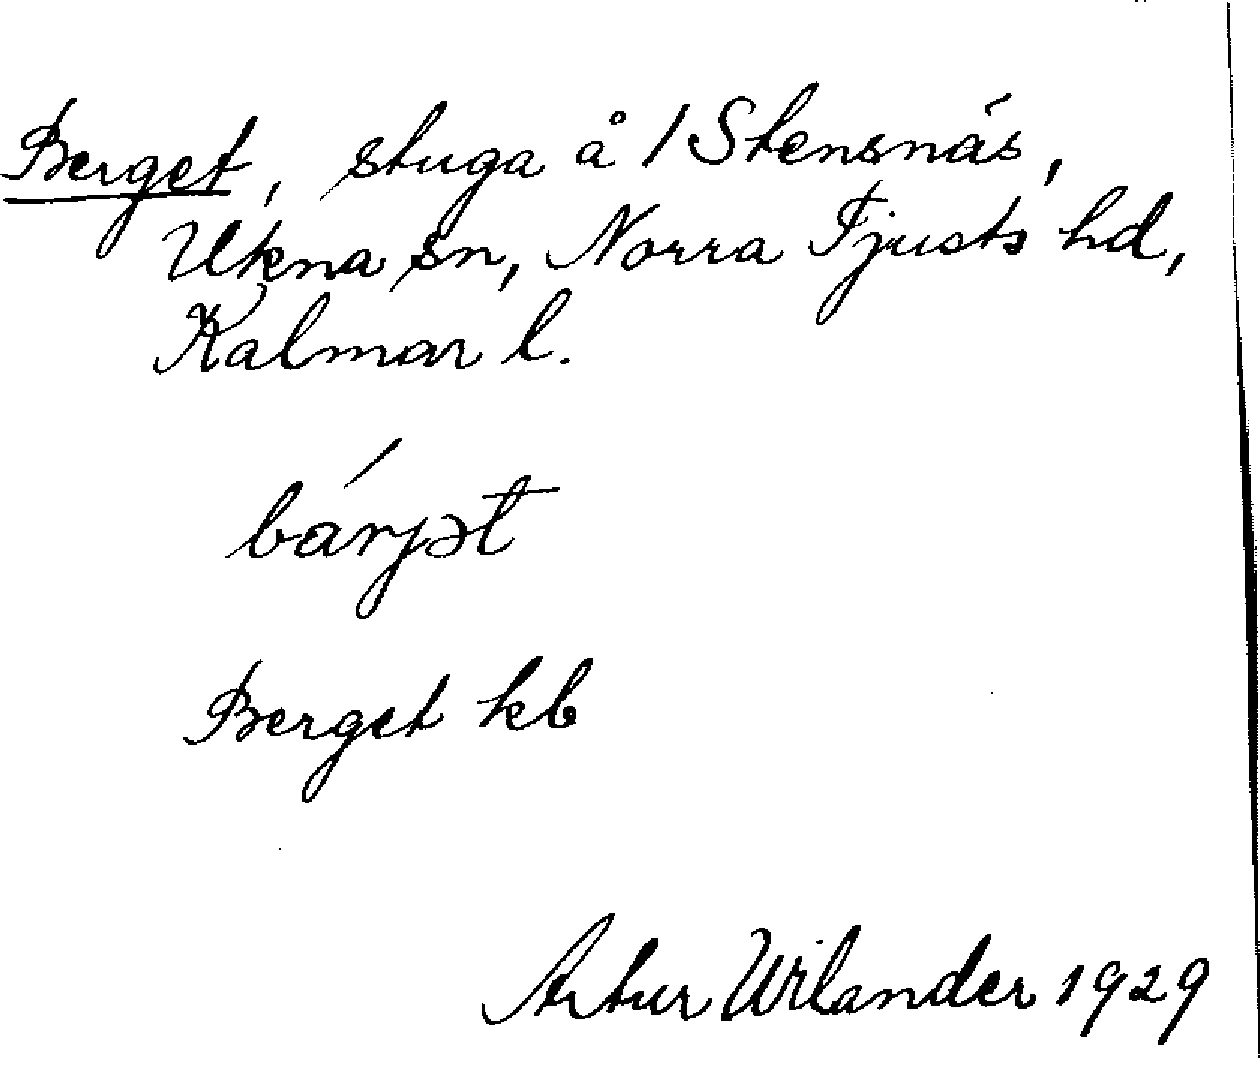 Berget, stuga å 1 Stensnäs,
Ukna sn, Norra Tjusts hd,
Kalmar l.
bárjət
Berget kb
Artur Wilander 1929